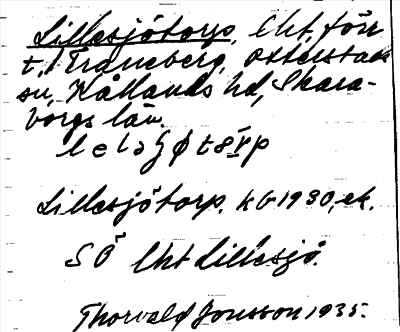 Lillesjötorp, lht, förr
t. Traneberg, Otterstads
sn, Kållands hd, Skara-
borgs län.
Lillesjötorp. kb 1930, ek.
SÖ lht Lillesjö.
Thorvald Jonsson 1935.